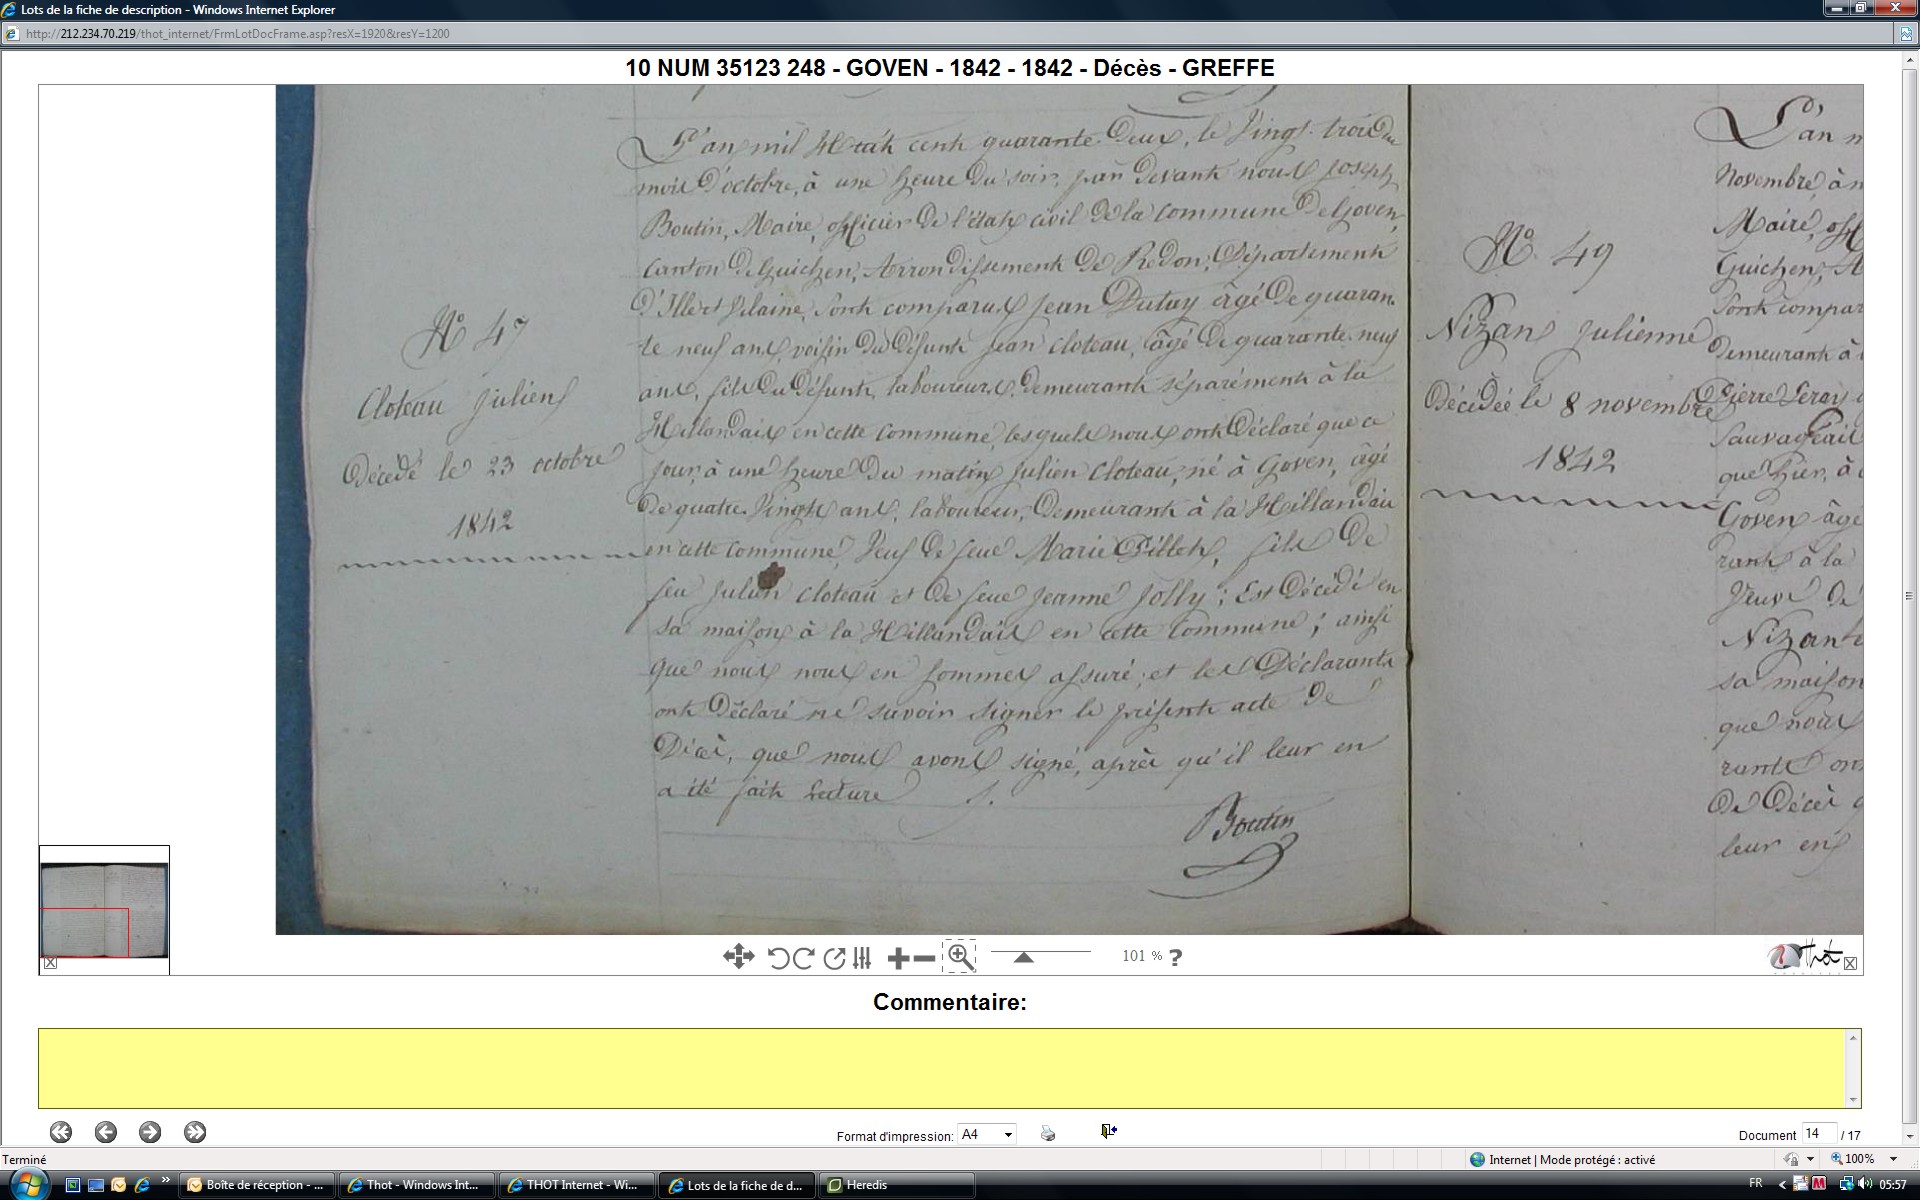 Lots de la fiche de description - Windows Internet Explorer
http://212.234.70.219/thot_internet/FrmLotDocFrame.asp?resX=1920&resY=1200
10 NUM 35123 248 - GOVEN - 1842 - 1842 - Décès - GREFFE
N° 47
Cloteau Julien
Décédé le 23 octobre
1842
L'an mil huit cent quarante Deux, le Vingt trois du
mois D'octobre, à une heure Du soir, par Devant nous Joseph
Boutin, Maire, officier de l'état civil de la commune De Goven,
Canton De Guichen, Arrondissement De Redon, Département
D'Ille et Vilaine, Sont comparus Jean Duluy âgé De quaran
te neuf ans, voisin Du Défunt Jean Cloteau, âgé De quarante neuf
ans, fils Du Défunt, laboureurs, Demeurant séparément à la
Hillandais en cette commune, lesquels nous ont Déclaré que ce
jour, à une heure Du matin Julien Cloteau, né à Goven, âgé
De quatre Vingt ans, laboureur, Demeurant à la Hillandais
en cette commune, Veuf De feue Marie Pillet, fils De
feu Julien Cloteau et De feue Jeanne Jolly; Est Décédé en
sa maison à la Hillandais en cette Commune; ainsi
que nous nous en sommes assuré; et les Déclarants
ont Déclaré ne savoir signer le présent acte De
Décès, que nous avons signé, après qu'il leur en
a été fait Lecture
Boutin
N° 49
Nizan Julienne
Décédée le 8 novembre
1842
L'an m
Novembre à
Maire, off
Guichen, A
Sont compar
Demeurant à
Pierre Leray
Sauvageais
que hier, à
Goven âgé
rant à la
Veuve De
Nizan
sa maison
que nous
rants on
De Décès q
leur en
101 % ?
Thot
Commentaire:
Format d'impression: A4
Document 14 / 17
Terminé
Internet | Mode protégé : activé
100%
Boîte de réception - ...
Thot - Windows Int...
THOT Internet - Wi...
Lots de la fiche de d...
Heredis
FR
05:57